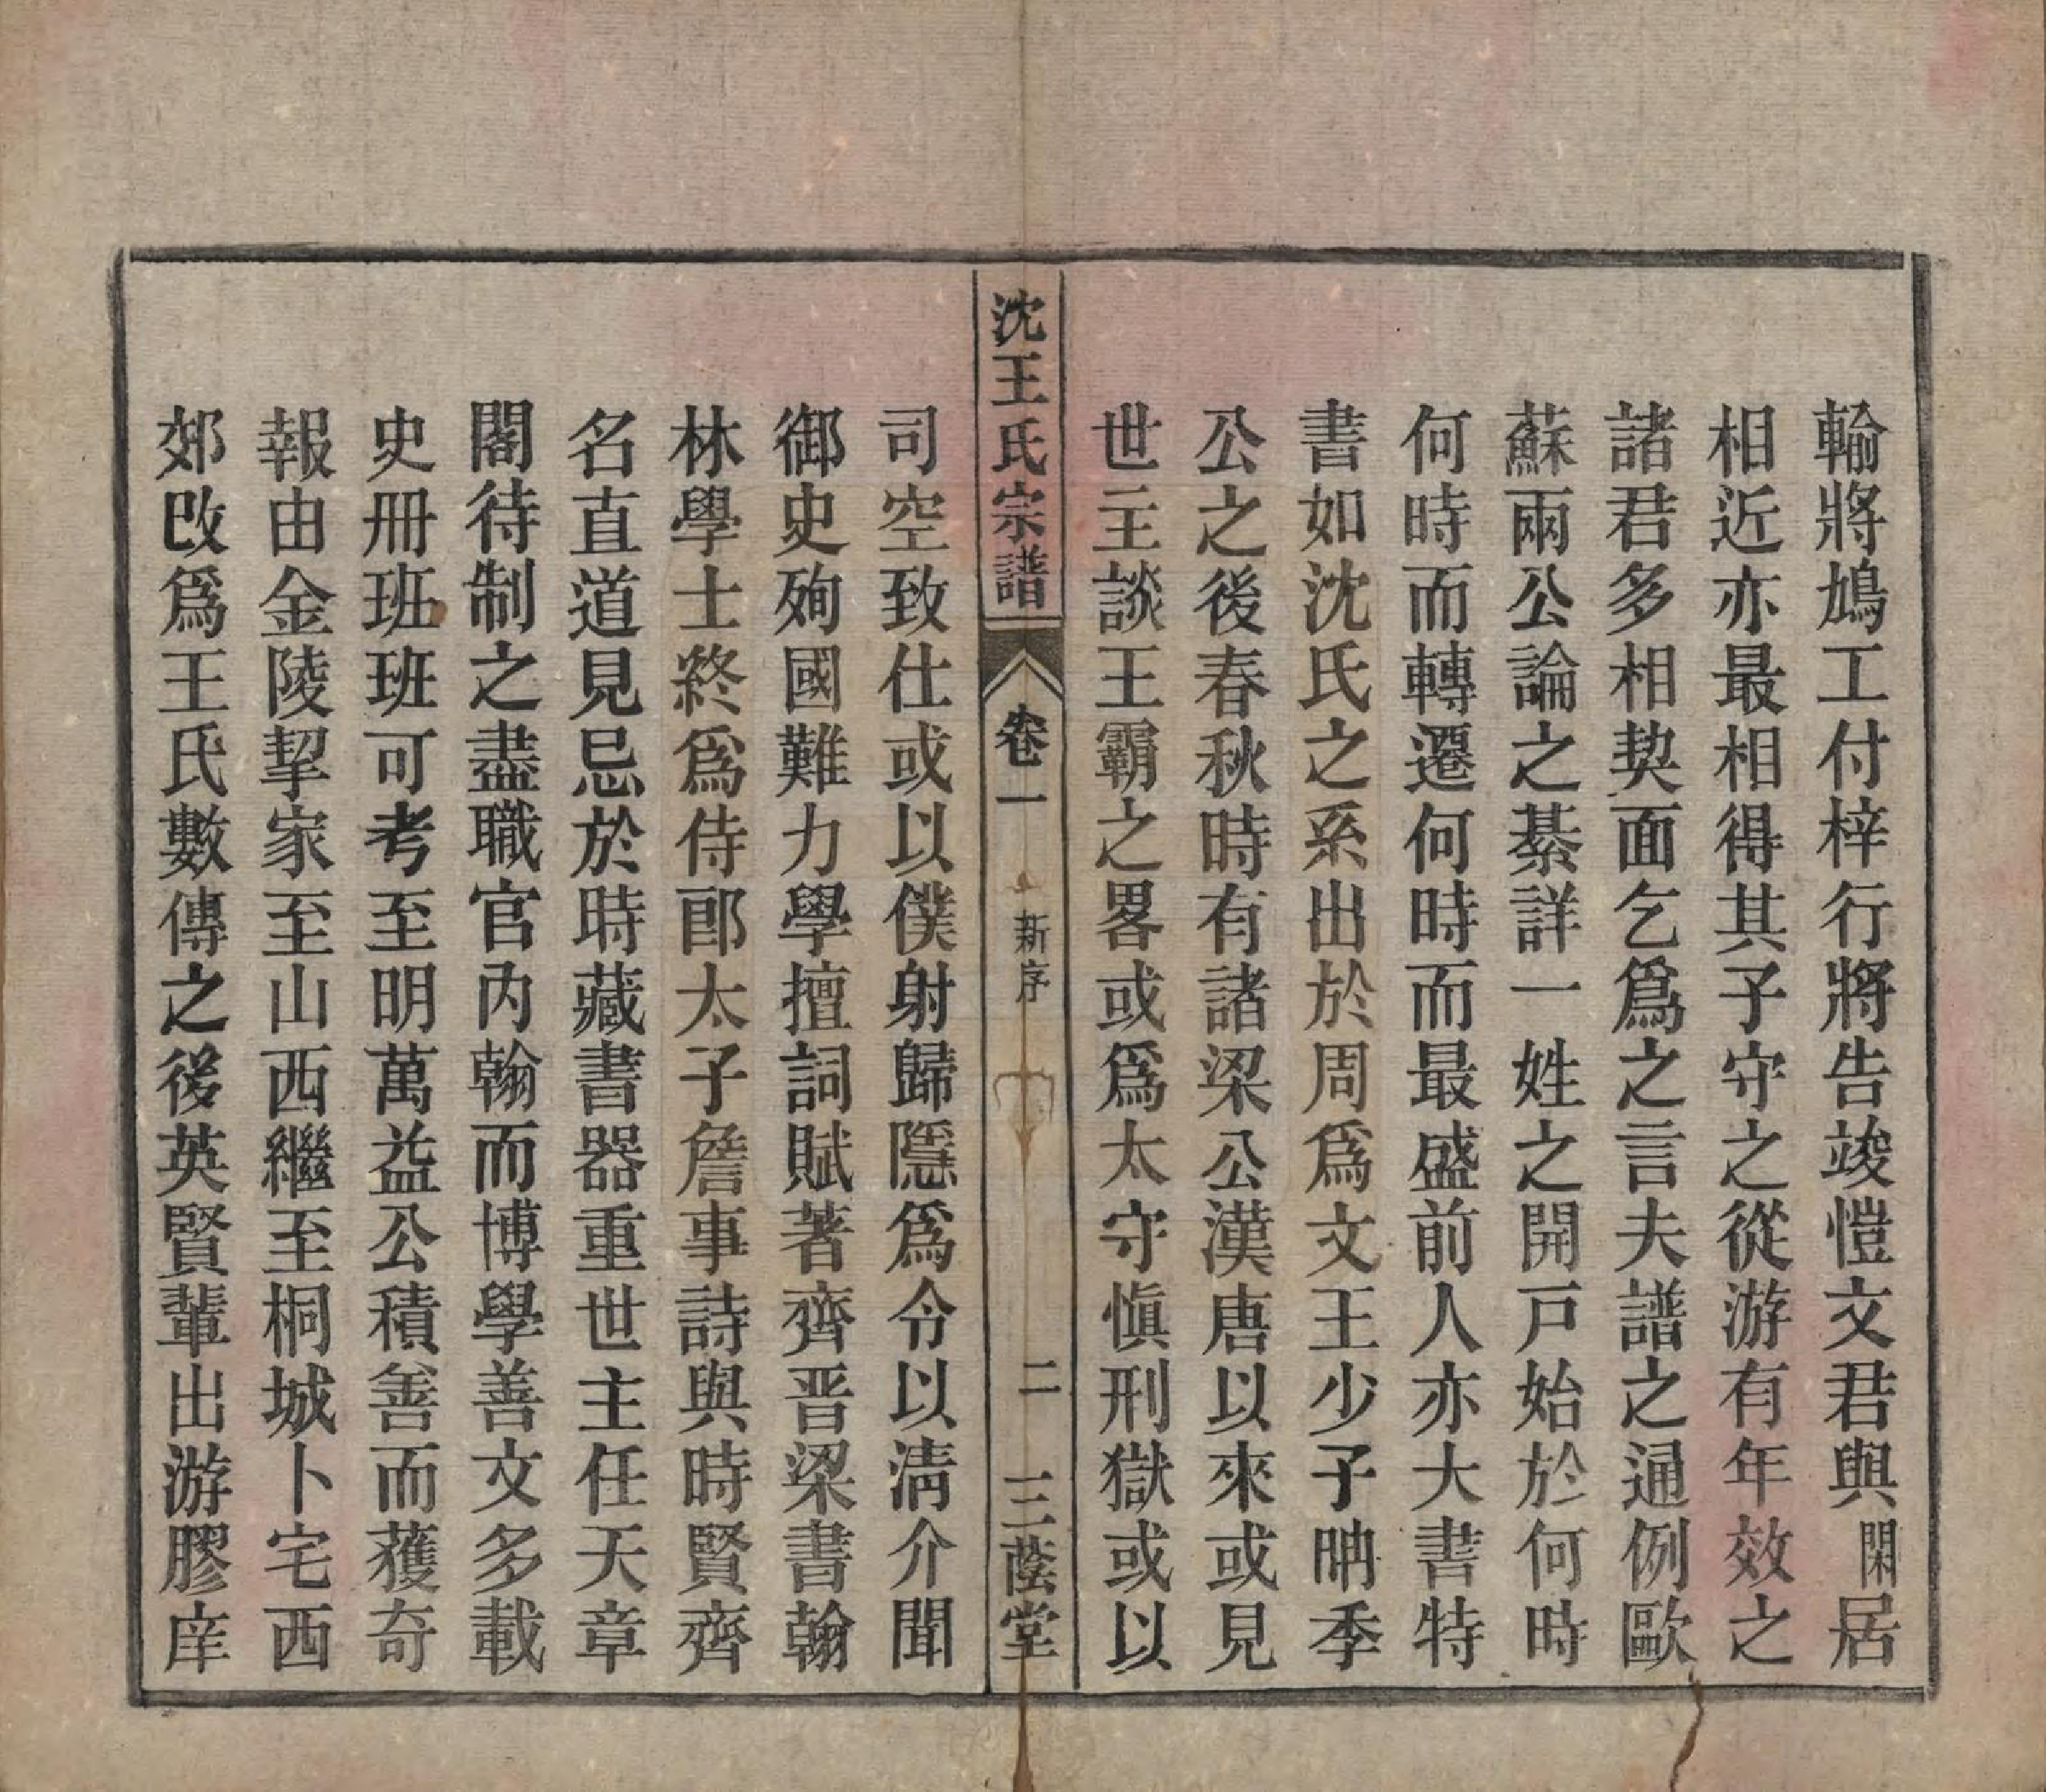 輸將鳩工付梓行將告竣愷文君與閑居
相近亦最相得其子守之從游有年效之
諸君多相契面乞爲之言夫譜之通例歐
蘇兩公論之綦詳一姓之開戸始於何時
何時而轉遷何時而最盛前人亦大書特
書如沈氏之系出於周爲文王少子聃季
公之後春秋時有諸梁公漢唐以來或見
世主談王霸之畧或爲太守慎刑獄或以
沈王氏宗譜
卷一
新序
二
三蔭堂
司空致仕或以僕射歸隱爲令以清介聞
御史殉國難力學擅詞賦著齊晋梁書翰
林學士終爲侍郎太子詹事詩與時賢齊
名直道見忌於時藏書器重世主任天章
閣待制之盡職官內翰而博學善文多載
史冊班班可考至明萬益公積善而獲奇
報由金陵挈家至山西繼至桐城卜宅西
郊改爲王氏數傳之後英賢輩出游膠庠